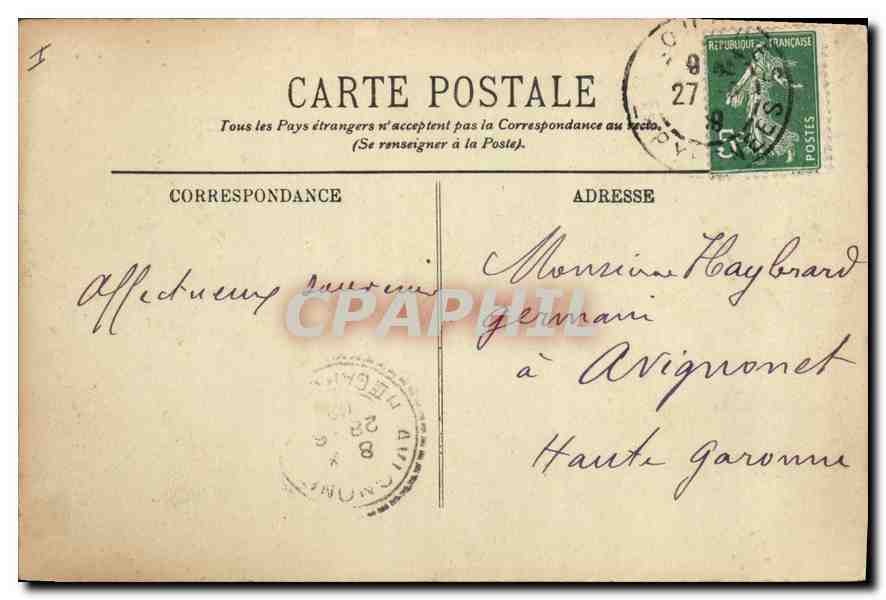 I
CARTE POSTALE
Tous les Pays étrangers n'acceptent pas la Correspondance au recto.
(Se renseigner à la Poste).
RÉPUBLIQUE FRANÇAISE
POSTES
5
9
27
8
CORRESPONDANCE
ADRESSE
Affectueux souvenir
Monsieur Haybrard
germain
à Avignonet
Haute Garonne
CPAPHIL
AVIGNON
28
8